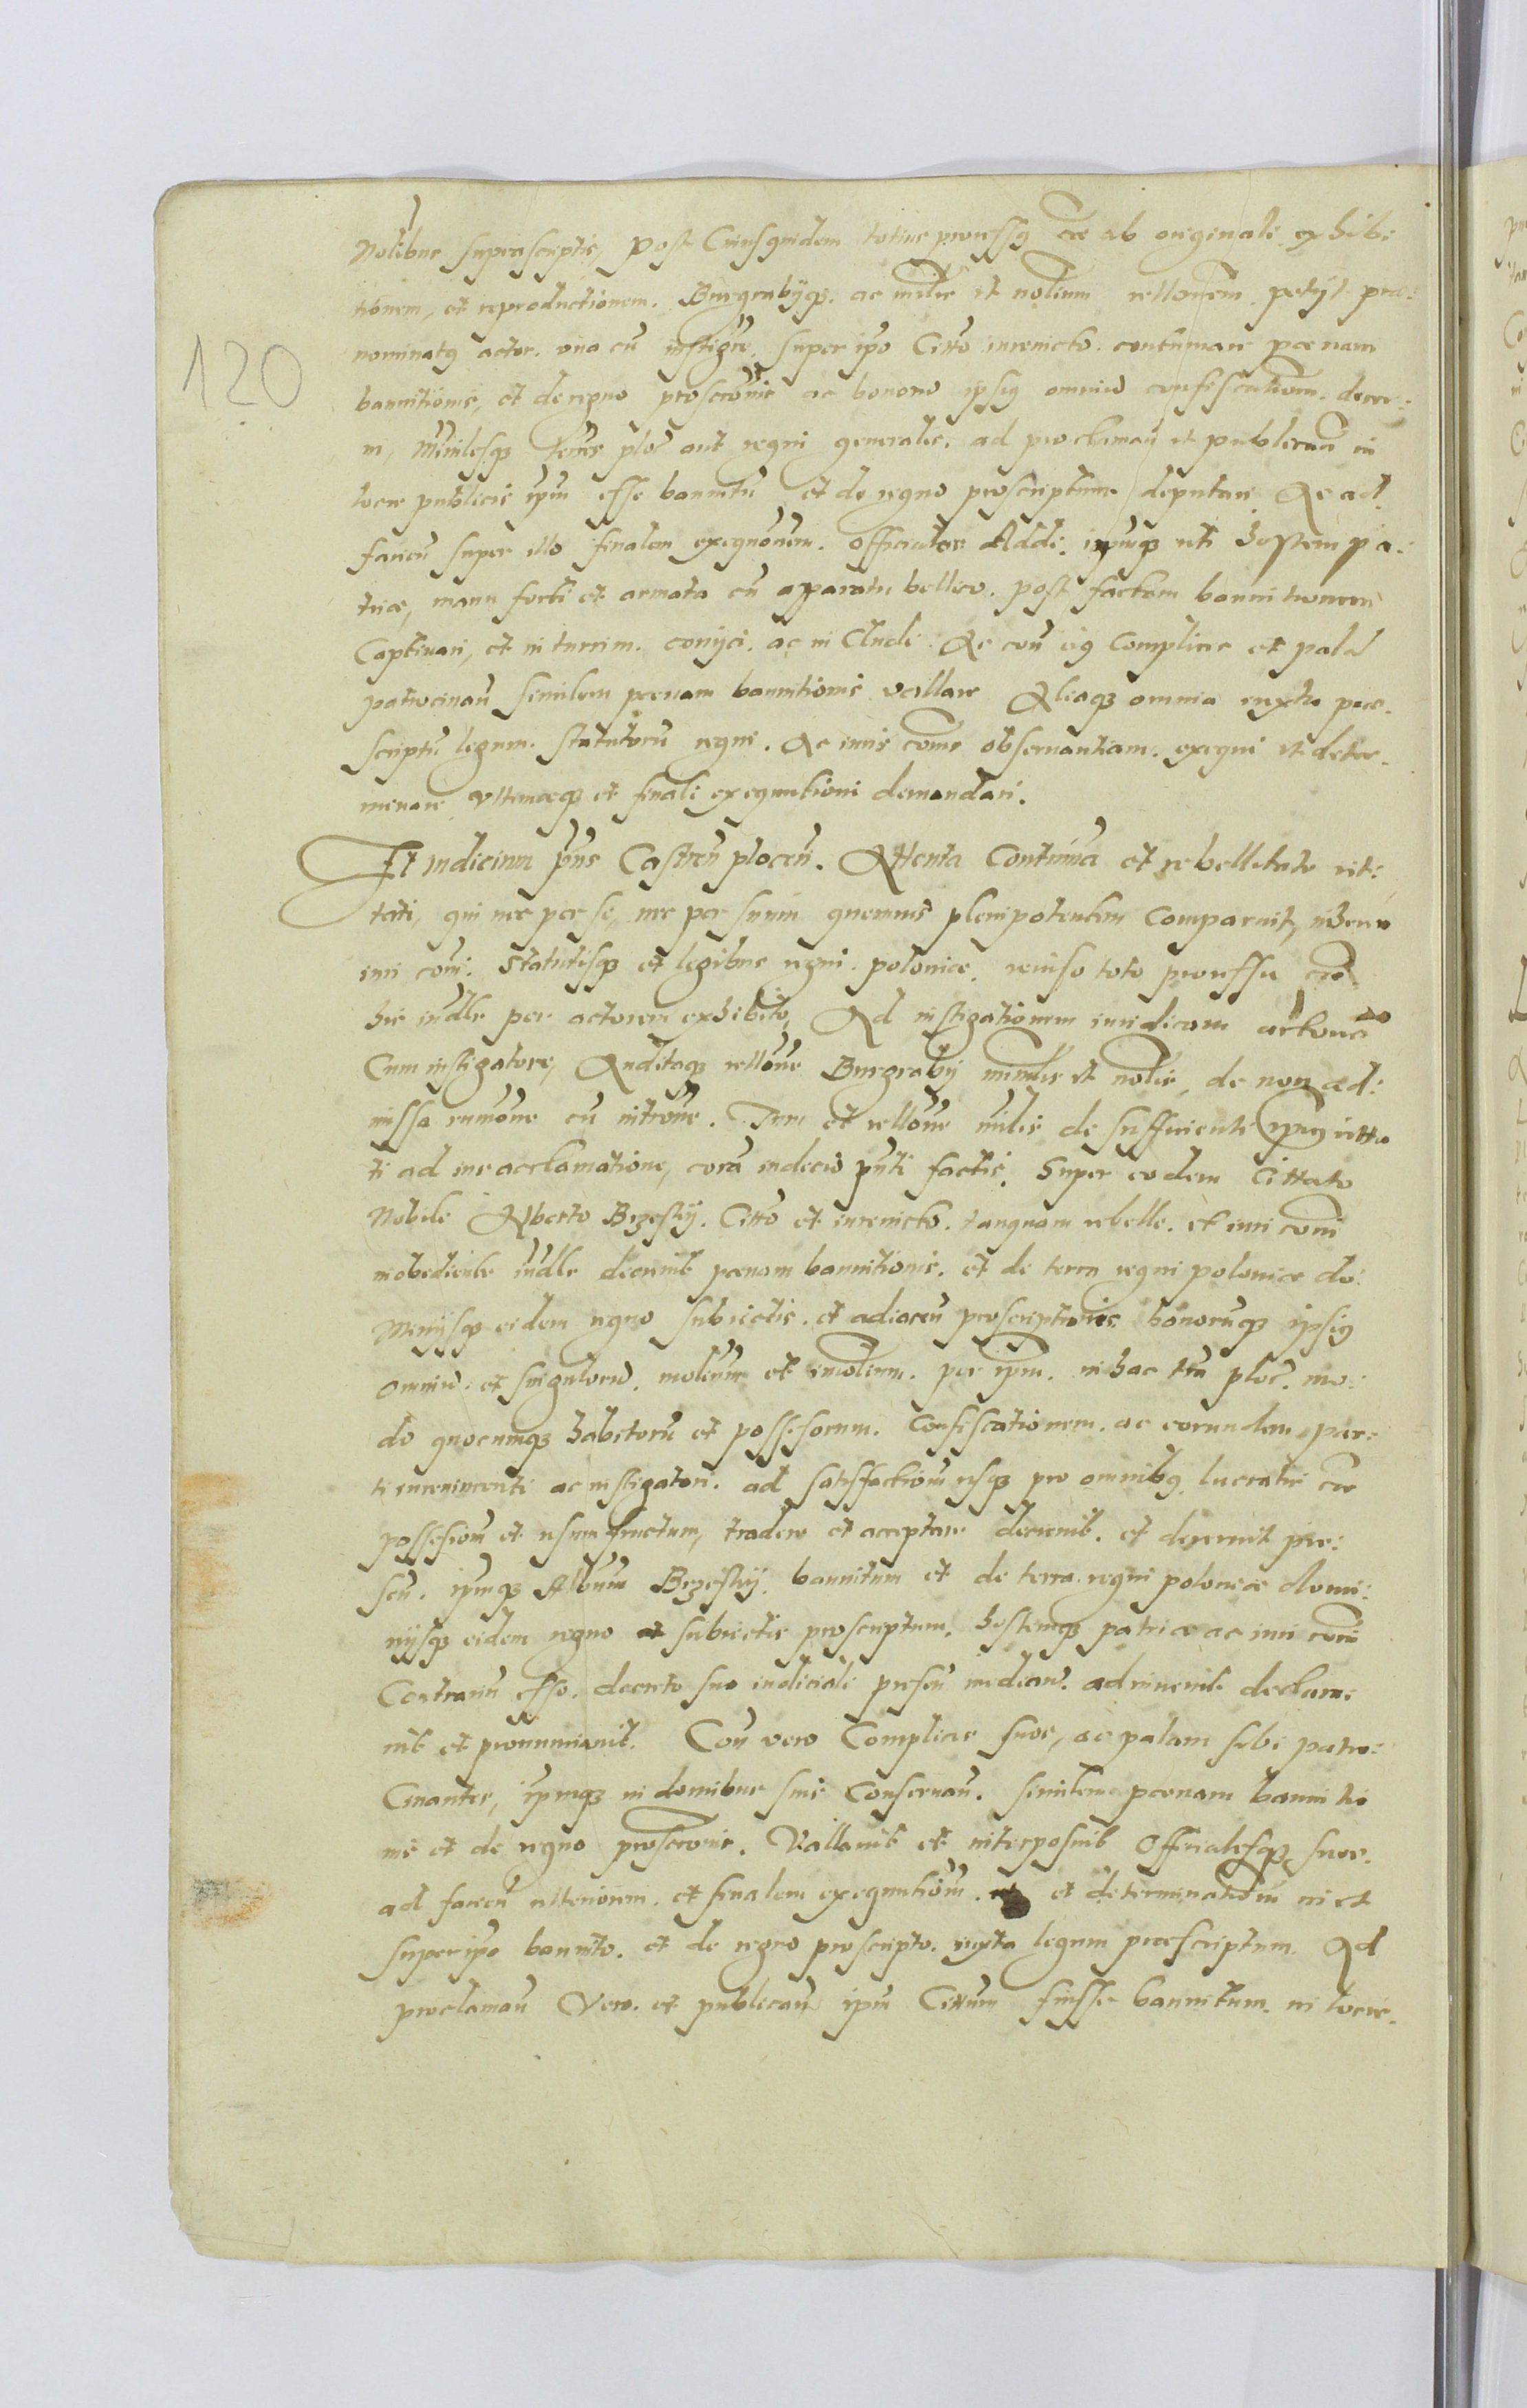 Nobilibus suprascriptis, post Cuiusquidem totius processus cãe ab originali exhibi
tionem, et reproductionem. Burgrabijq3. ac mĩlis et nobilium rellonem. petijt præ:
nominatus actor. una cũ instigre. super ipo Citto inuenicto. contumace pœnam
120
bannitionis, et de regno proscronis ac bonoru ipsius omniu confiscationem. decer:
ni, Mĩnilesq3 terrs ploc aut regni generales. ad proclaman et publicana in
locis publicis ipm esse bannitu et de regno proscriptum deputari Ac ad
facien super illo finalem exequonem. officiales Addi. ipmq3 uti hostem pa:
triæ, manu forti et armata cũ aparatu bellico. post factam bannitionem
Captiuari, et in turrim. conijci. ac in Cludi. Ac con eius Complices et pala
patrocinan similem pœnam bannitionis vallare Aliaq3 omnia iuxta præ.
scriptu legum. statutoru regni. Ac iuris cõmis obseruantiam. exequi et deter.
minare ultimæq3 et finali exequutioni demandari.
Et Iudicium pñs Castreñ ploceñ. Attenta Contuma et rebellitate cit:
tati, qui nec per se, nec per suum quemuis plenipotentem Comparuit, inheren
iuri coni. Statutisq3 et legibus regni. poloniæ. reuiso toto processu cãe
hic iudle per actorem exhibito, Ad instigationem iuridicam actorea
Cum instigatore, Auditaq3 rellone Burgrabij minilis et nobilis, de non ad:
missa rumone cũ introne. Tum et rellone milis de sufficienti ipius citta
ti ad ius acclamatione, corã iudicio pñti factis. Super eodem Cittato
Nobile Alberto Brzeskij. Citto et inuenicto. tanquam rebelle. et iuri coni
inobediente iudle decernit pœnam bannitionis. et de terra regni poloniæ do:
Minijsq3 eidem regno subiectis. et adiacen proscriptionis bonorumq3 ipsius
omniu. et singuloru. mobilium et imobilium. per ipm. in hac tra ploc. mo:
do quocumq3 habitoru et possessorum. confiscationem. ac eorundem par:
ti inuenimenti ac instigatori. ad satisfactionem usq3 pro omnibus lucratis cãe
possesione et usumfructum, tradere et acceptare decernit. et decreuit præ:
sen. ipmq3 Album Brzeskij. bannitum et de terra regni poloniæ domi:
nijsq3 eidem regno subiectis proscriptum. hostemq3 patriæ ac iuri comi
Contrariu esse. decreto suo iudiciali presen median. adinuenit declara:
uit et pronunciauit. Con vero Complices suos, ac palam sibi patro:
Cinantes, ipmq3 in domibus suis Conseruan. similem pœnam banniti
nis et de regno proscronis. Vallauit et interposuit Officialesq3 suos.
ad facien ulteriorem. et finalem exequutionem. et determinationem
super ipo bannito. et de regno proscripto. iuxta legum præscriptum. Ad
proclaman Vero. et publican ipm Cittum fuisse bannitum. in locis.